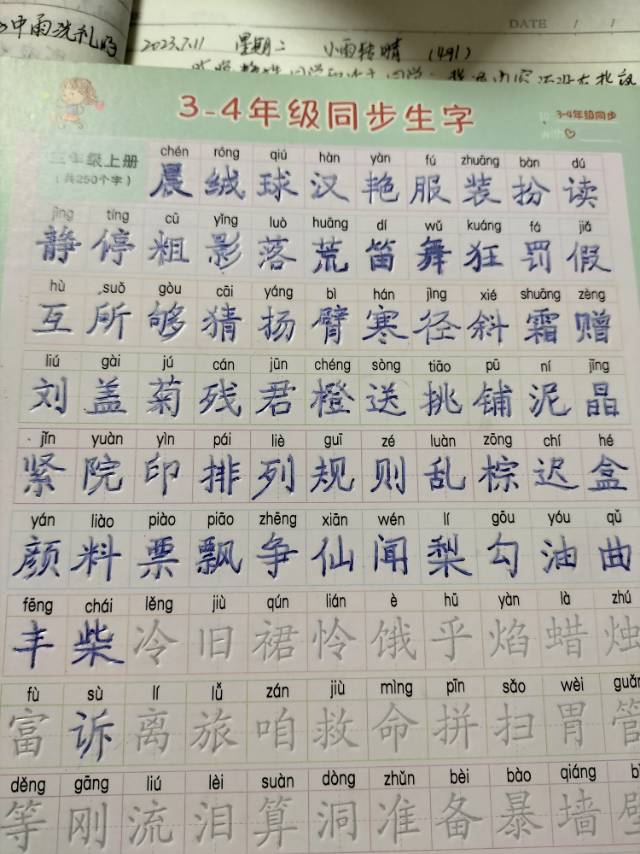 中雨洗礼
DATE / /
2023.7.11 星期二 小雨转晴 (491)
3-4年级同步生字
3-4年级同步
三年级上册
(共250个字)
chén róng qiú hàn yàn fú zhuāng bàn dú
晨 绒 球 汉 艳 服 装 扮 读
jìng tíng cū yǐng luò huāng dí wǔ kuáng fá jiǎ
静 停 粗 影 落 荒 笛 舞 狂 罚 假
hù suǒ gòu cāi yáng bì hán jìng xié shuāng zèng
互 所 够 猜 扬 臂 寒 径 斜 霜 赠
liú gài jú cán jūn chéng sòng tiāo pū ní jīng
刘 盖 菊 残 君 橙 送 挑 铺 泥 晶
jǐn yuàn yìn pái liè guī zé luàn zōng chí hé
紧 院 印 排 列 规 则 乱 棕 迟 盒
yán liào piào piāo zhēng xiān wén lí gōu yóu qǔ
颜 料 票 飘 争 仙 闻 梨 勾 油 曲
fēng chái lěng jiù qún lián è hū yàn là zhú
丰 柴 冷 旧 裙 怜 饿 乎 焰 蜡 烛
fù sù lí lǚ zán jiù mìng pīn sǎo wèi guǎn
富 诉 离 旅 咱 救 命 拼 扫 胃 管
děng gāng liú lèi suàn dòng zhǔn bèi bào qiáng
等 刚 流 泪 算 洞 准 备 暴 墙 壁